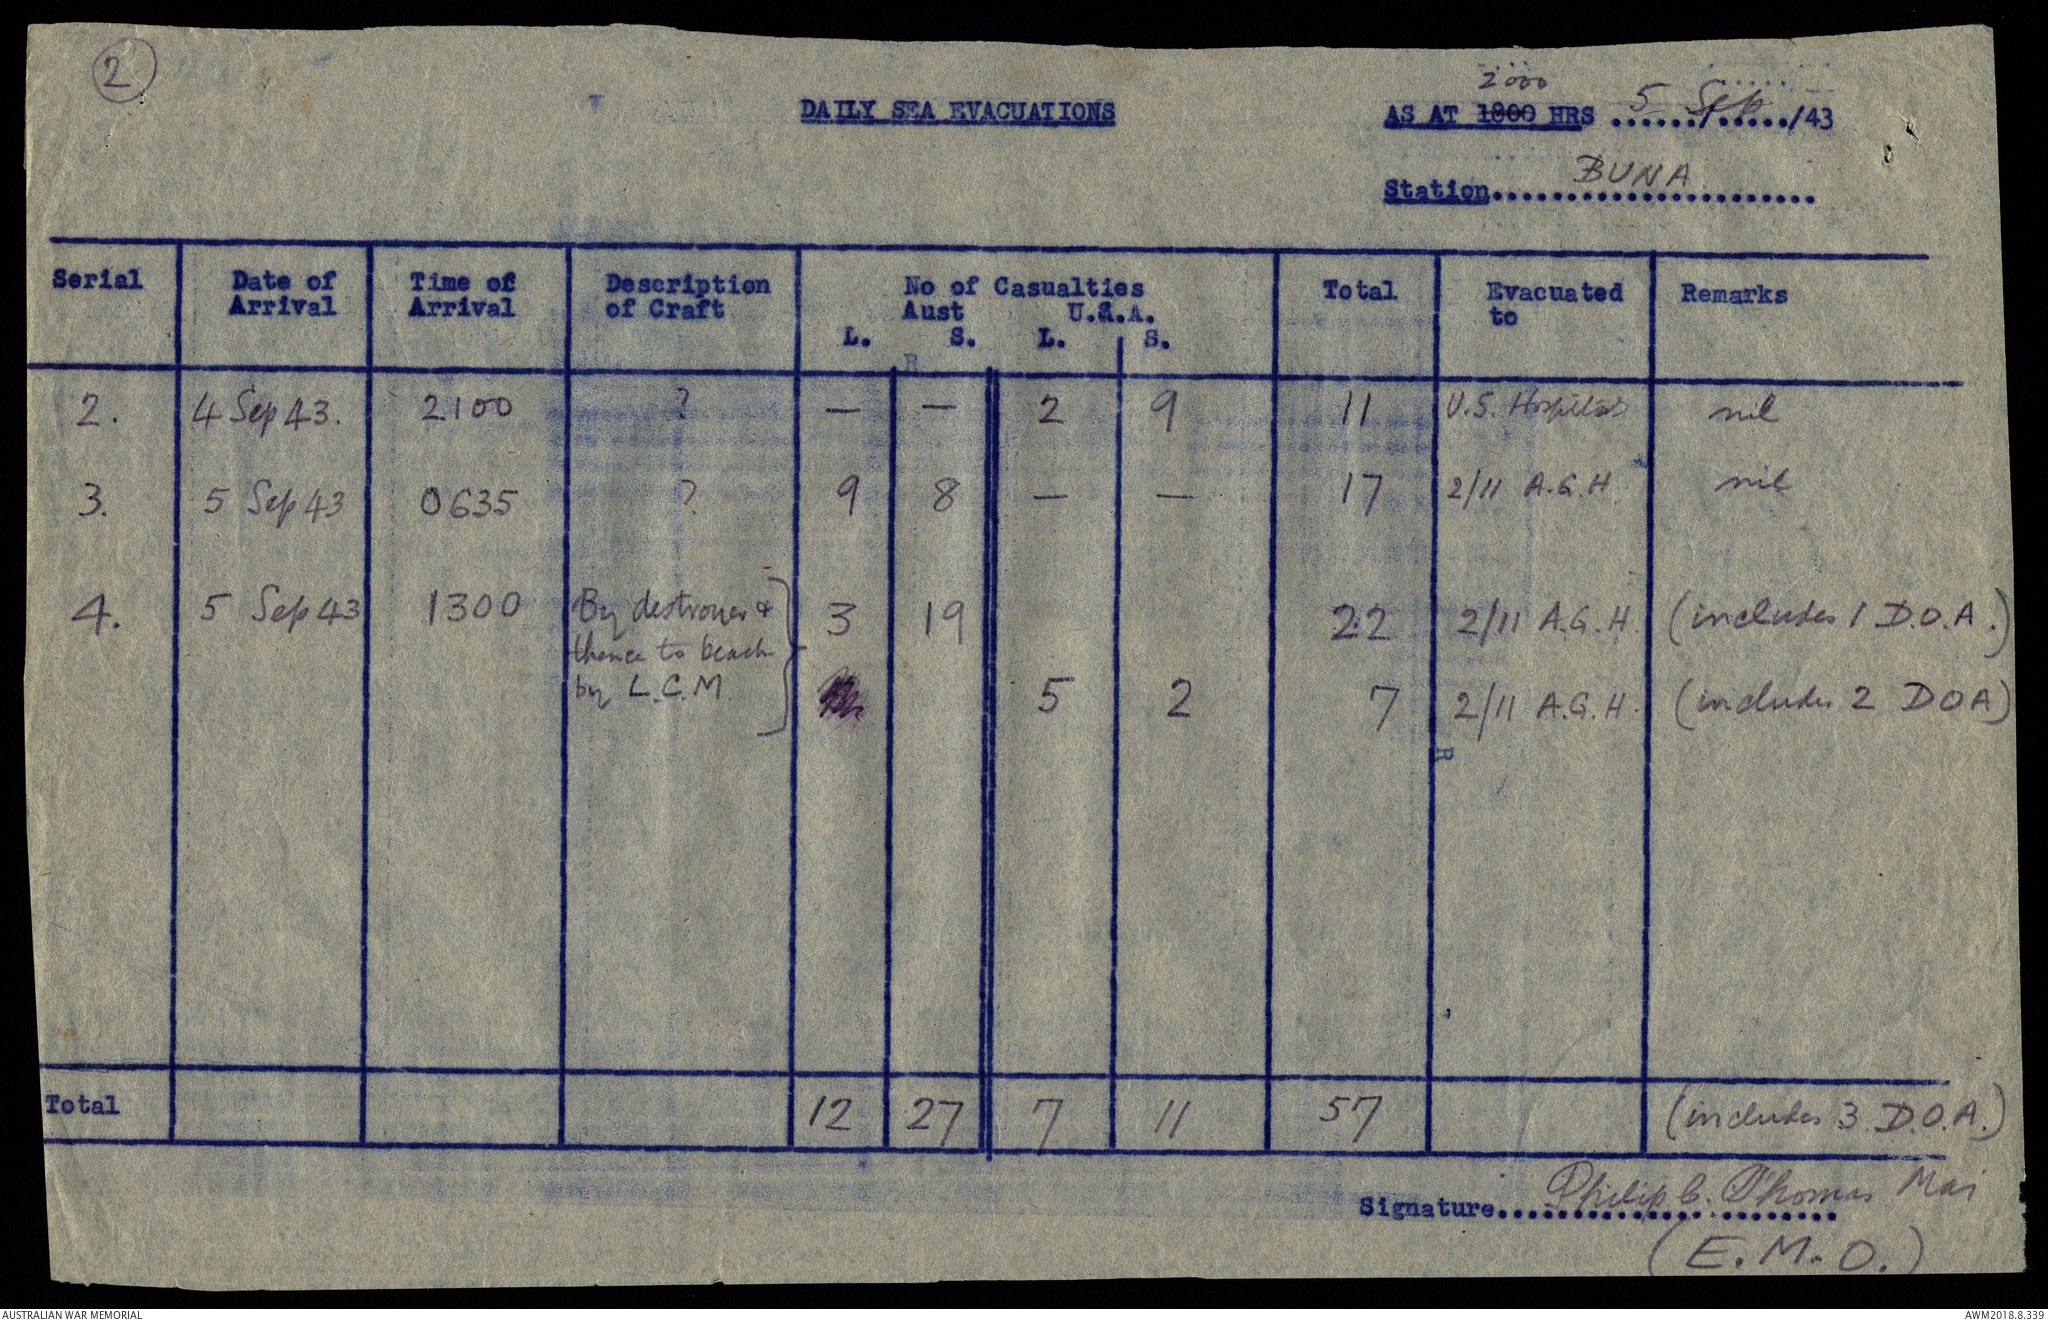 2
DAILY SEA EVACUATIONS
2000
AS AT 1800 HRS 5 Sep /43
Station BUNA
Serial Date of Time of Description No of Casualties Total Evacuated Remarks
Arrival Arrival of Craft Aust U.S.A. to
L. S. L. S.
2. 4 Sep 43. 2100 ? — — 2 9 11 U.S. Hospital nil
3. 5 Sep 43 0635 ? 9 8 — — 17 2/11 A.G.H nil
4. 5 Sep 43 1300 By destroyer & 3 19 22 2/11 A.G.H. (includes 1 D.O.A.)
thence to beach
by L.C.M. 5 2 7 2/11 A.G.H. (includes 2 DOA)
R
Total 12 27 7 11 57 (includes 3 D.O.A.)
Signature Philip C. Thomas Maj
(E.M.O.)
AUSTRALIAN WAR MEMORIAL AWM2018.8.339